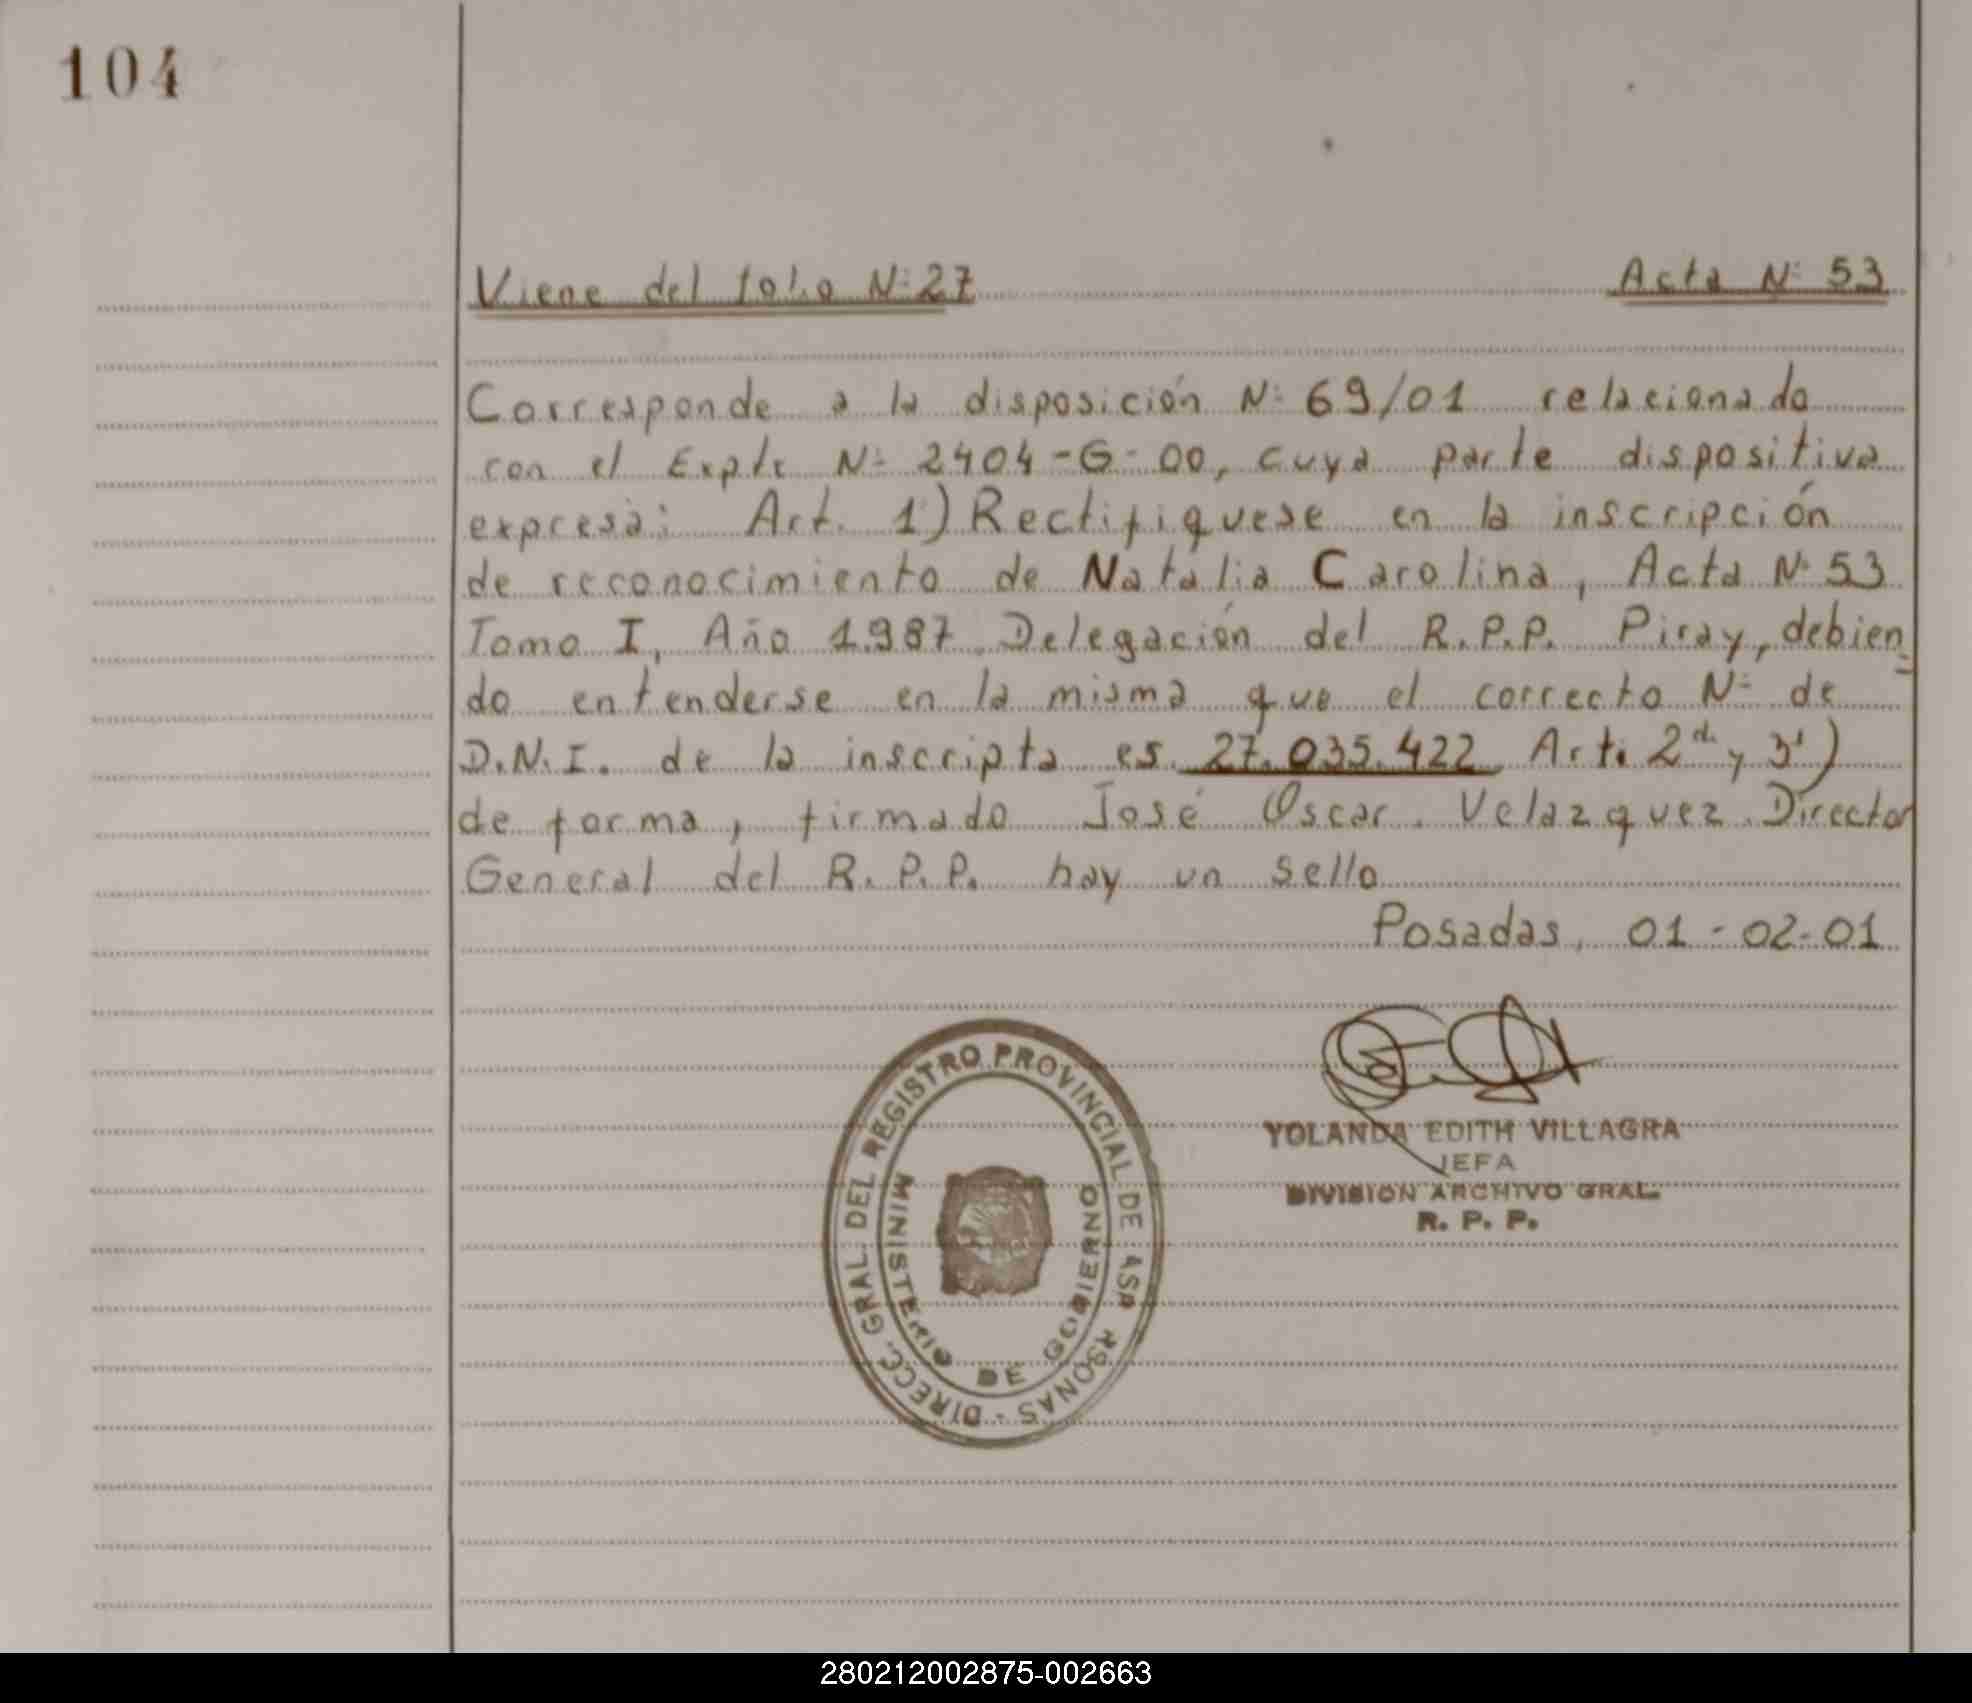 104
Viene del folio Nº 27 Acta Nº 53
Corresponde a la disposición Nº 69/01 relacionado
con el Expte Nº 2404-G-00, cuya parte dispositiva
expresa: Art. 1) Rectifiquese en la inscripción
de reconocimiento de Natalia Carolina, Acta Nº 53
Tomo I, Año 1.987 Delegación del R.P.P. Piray, debien=
do entenderse en la misma que el correcto Nº de
D.N.I. de la inscripta es 27.035.422 Art. 2 y 3)
de forma, firmado José Oscar Velazquez Director
General del R.P.P. hay un sello
Posadas, 01-02-01
YOLANDA EDITH VILLAGRA
JEFA
DIVISION ARCHIVO GRAL.
R. P. P.
DIRECC. GRAL. DEL REGISTRO PROVINCIAL DE
MINISTERIO DE GOBIERNO
280212002875-002663